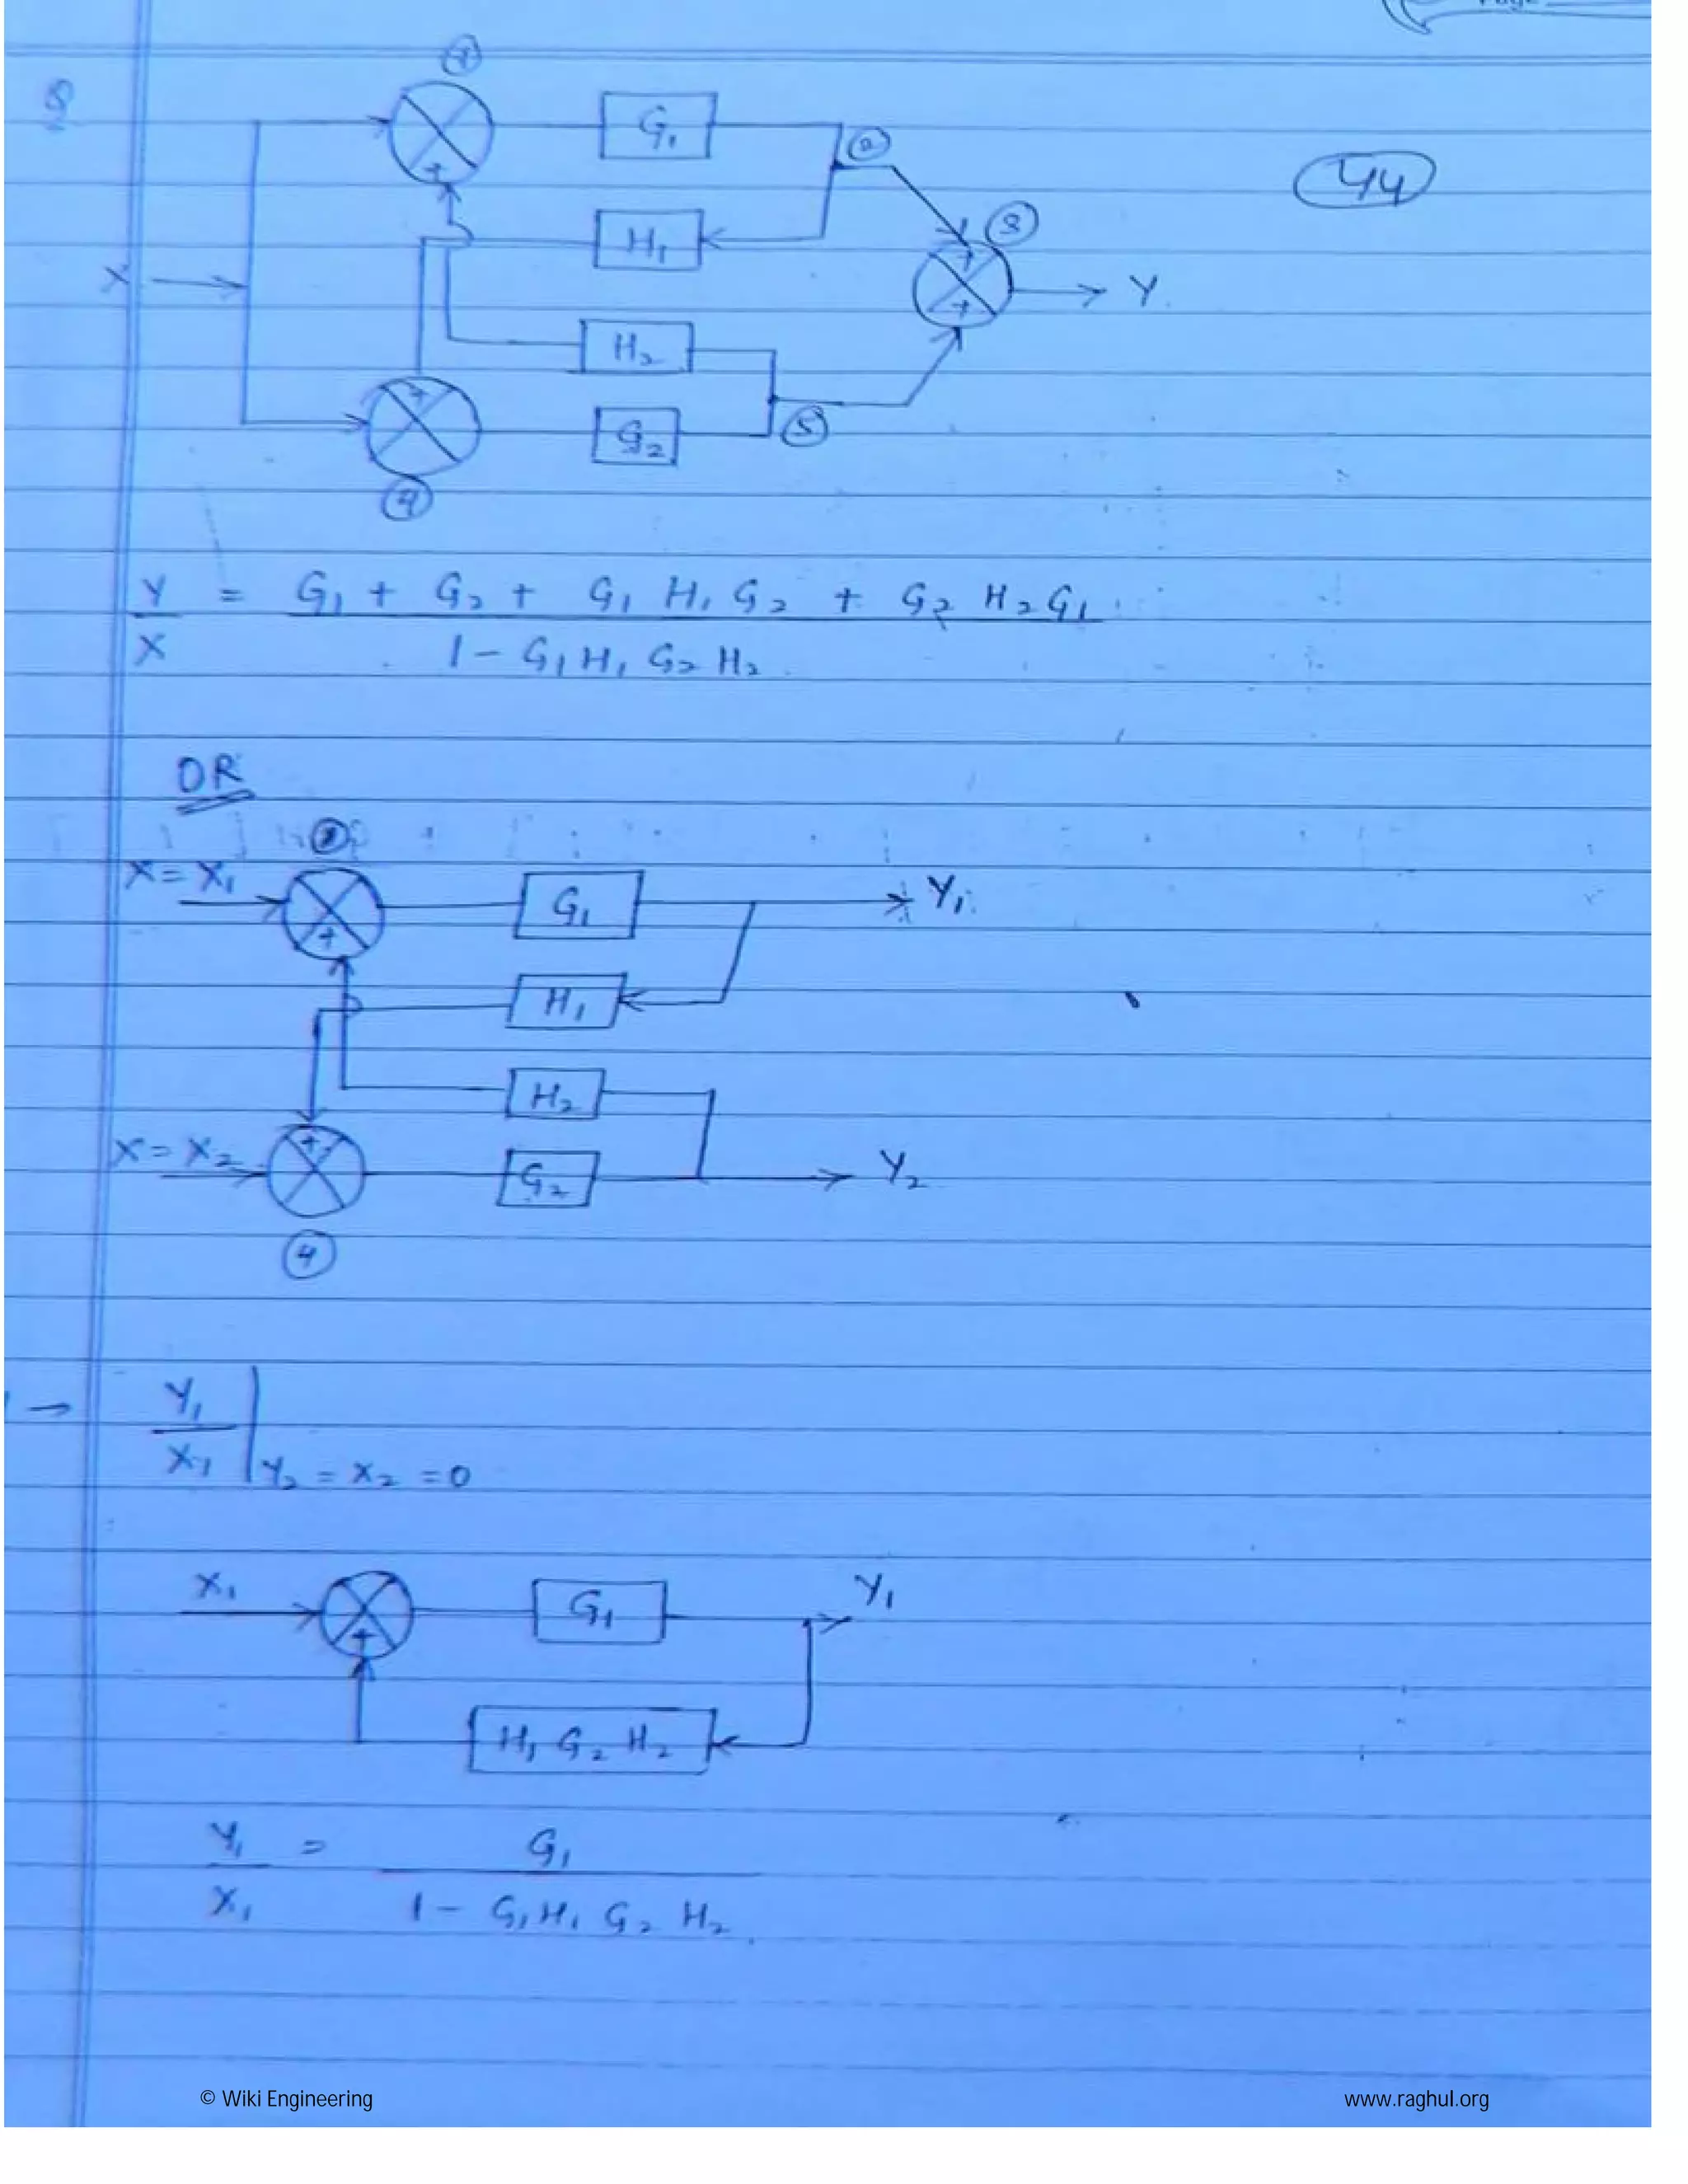 ①
8
G₁
②
44
+
H₁
③
X
+
+
Y
H₂
+
G₂
⑤
④
Y/X = (G₁ + G₂ + G₁ H₁ G₂ + G₂ H₂ G₁) / (1 - G₁ H₁ G₂ H₂)
OR
X = X₁
G₁
Y₁
+
H₁
H₂
X = X₂
+
G₂
Y₂
④
→ Y₁/X₁ | Y₂ = X₂ = 0
X₁
G₁
Y₁
+
H₁ G₂ H₂
Y₁/X₁ = G₁ / (1 - G₁ H₁ G₂ H₂)
© Wiki Engineering
www.raghul.org